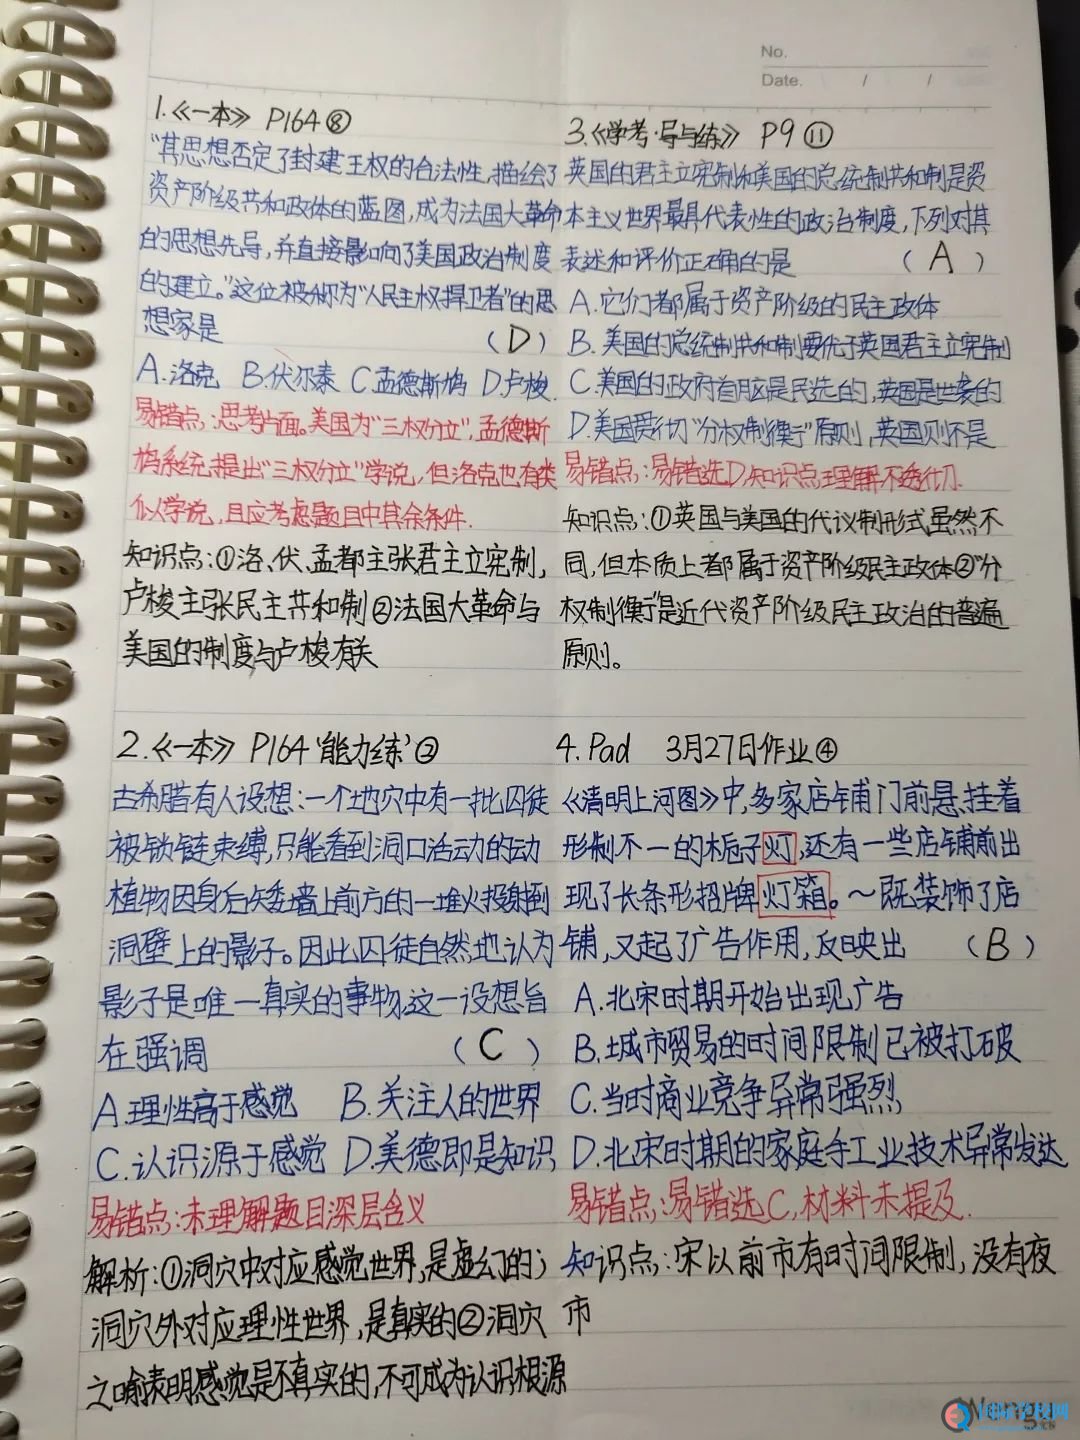 No.
Date. / /
1.《一本》 P164⑧
"其思想否定了封建王权的合法性,描绘了
资产阶级共和政体的蓝图,成为法国大革命
的思想先导,并直接影响了美国政治制度
的建立。"这位被称为"人民主权捍卫者"的思
想家是 (D)
A.洛克 B.伏尔泰 C孟德斯鸠 D卢梭.
易错点:思考片面。美国为"三权分立",孟德斯
鸠系统提出"三权分立"学说,但洛克也有类
似学说,且应考虑题目中其余条件.
知识点:①洛、伏、孟都主张君主立宪制,
卢梭主张民主共和制②法国大革命与
美国的制度与卢梭有关
2.《一本》 P164'能力练'②
古希腊有人设想:一个地穴中有一批囚徒
被锁链束缚,只能看到洞口活动的动
植物因身后矮墙上前方的一堆火投射到
洞壁上的影子。因此囚徒自然地认为
影子是唯一真实的事物.这一设想旨
在强调 (C)
A.理性高于感觉 B.关注人的世界
C.认识源于感觉 D.美德即是知识
易错点:未理解题目深层含义
解析:①洞穴中对应感觉世界,是虚幻的;
洞穴外对应理性世界,是真实的②洞穴
之喻表明感觉是不真实的,不可成为认识根源
3.《学考·导与练》 P9⑪
英国的君主立宪制和美国的总统制共和制是资
本主义世界最具代表性的政治制度,下列对其
表述和评价正确的是 (A)
A.它们都属于资产阶级的民主政体
B.美国的总统制共和制要优于英国君主立宪制
C.美国的政府首脑是民选的,英国是世袭的
D.美国贯彻"分权制衡"原则,英国则不是
易错点:易错选D,知识点理解不透彻.
知识点:①英国与美国的代议制形式虽然不
同,但本质上都属于资产阶级民主政体②"分
权制衡"是近代资产阶级民主政治的普遍
原则。
4.Pad 3月27日作业④
《清明上河图》中,多家店铺门前悬挂着
形制不一的栀子灯,还有一些店铺前出
现了长条形招牌灯箱。~既装饰了店
铺,又起了广告作用,反映出 (B)
A.北宋时期开始出现广告
B.城市贸易的时间限制已被打破
C.当时商业竞争异常强烈
D.北宋时期的家庭手工业技术异常发达
易错点:易错选C,材料未提及.
知识点:宋以前市有时间限制,没有夜
市
国际学校网